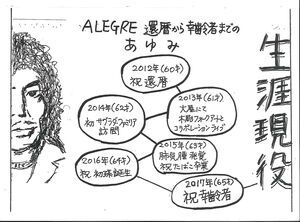 ALEGRE 還暦から幸齢者までの
あゆみ
2012年(60才)
祝 還暦
2013年(61才)
大島にて
木島フォークアートと
コラボレーションライブ
2014年(62才)
初 サグラダ・ファミリア
訪問
2015年(63才)
肺気腫発覚
祝 たばこ卒業
2016年(64才)
祝 初孫誕生
2017年(65才)
祝 幸齢者
生涯現役